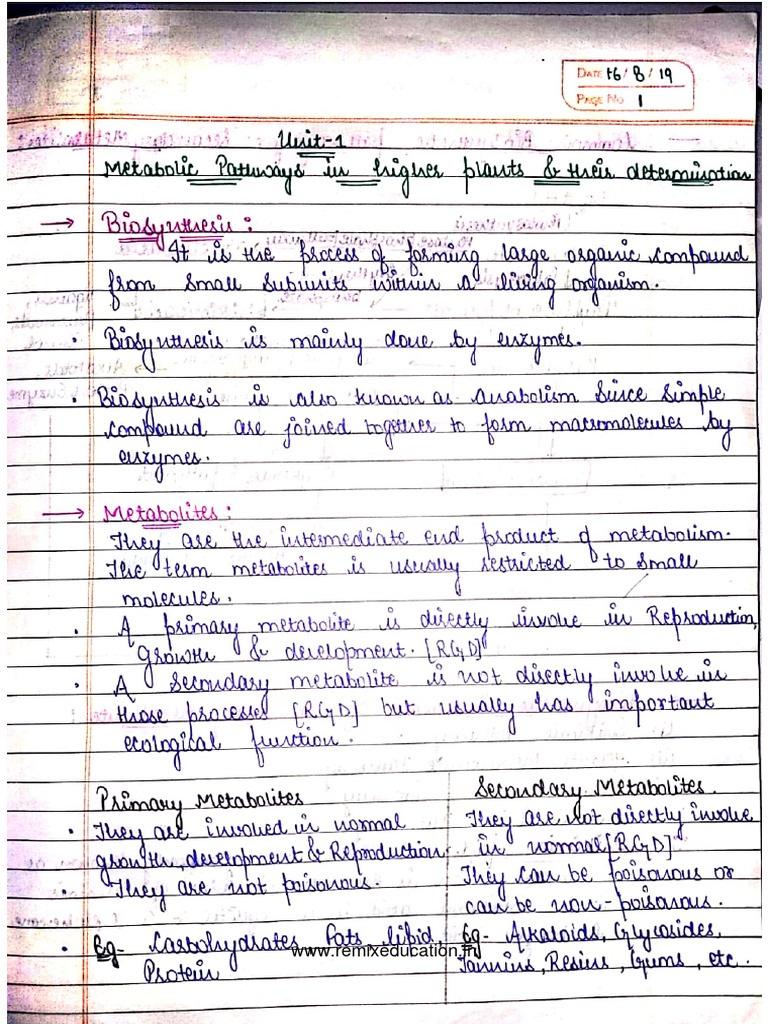 DATE 16/8/19
PAGE NO. 1
Unit-1
Metabolic Pathways in higher plants & their determination
→ Biosynthesis:
It is the process of forming large organic compound
from small subunits within a living organism.
• Biosynthesis is mainly done by enzymes.
• Biosynthesis is also known as anabolism since simple
compound are joined together to form macromolecules by
enzymes.
→ Metabolites:
They are the intermediate end product of metabolism.
The term metabolites is usually restricted to small
molecules.
• A primary metabolite is directly involve in Reproduction,
growth & development. [RGD]
• A secondary metabolite is not directly involve in
those processes [RGD] but usually has important
ecological function.
Primary Metabolites
• They are involved in normal
growth, development & Reproduction.
• They are not poisonous.
• Eg- Carbohydrates Fats lipid
Protein
Secondary Metabolites.
They are not directly involve
in normal [RGD]
They can be poisonous or
can be non-poisonous.
Eg- Alkaloids, Glycosides,
Tannins, Resins, Gums, etc.
www.remixeducation.in